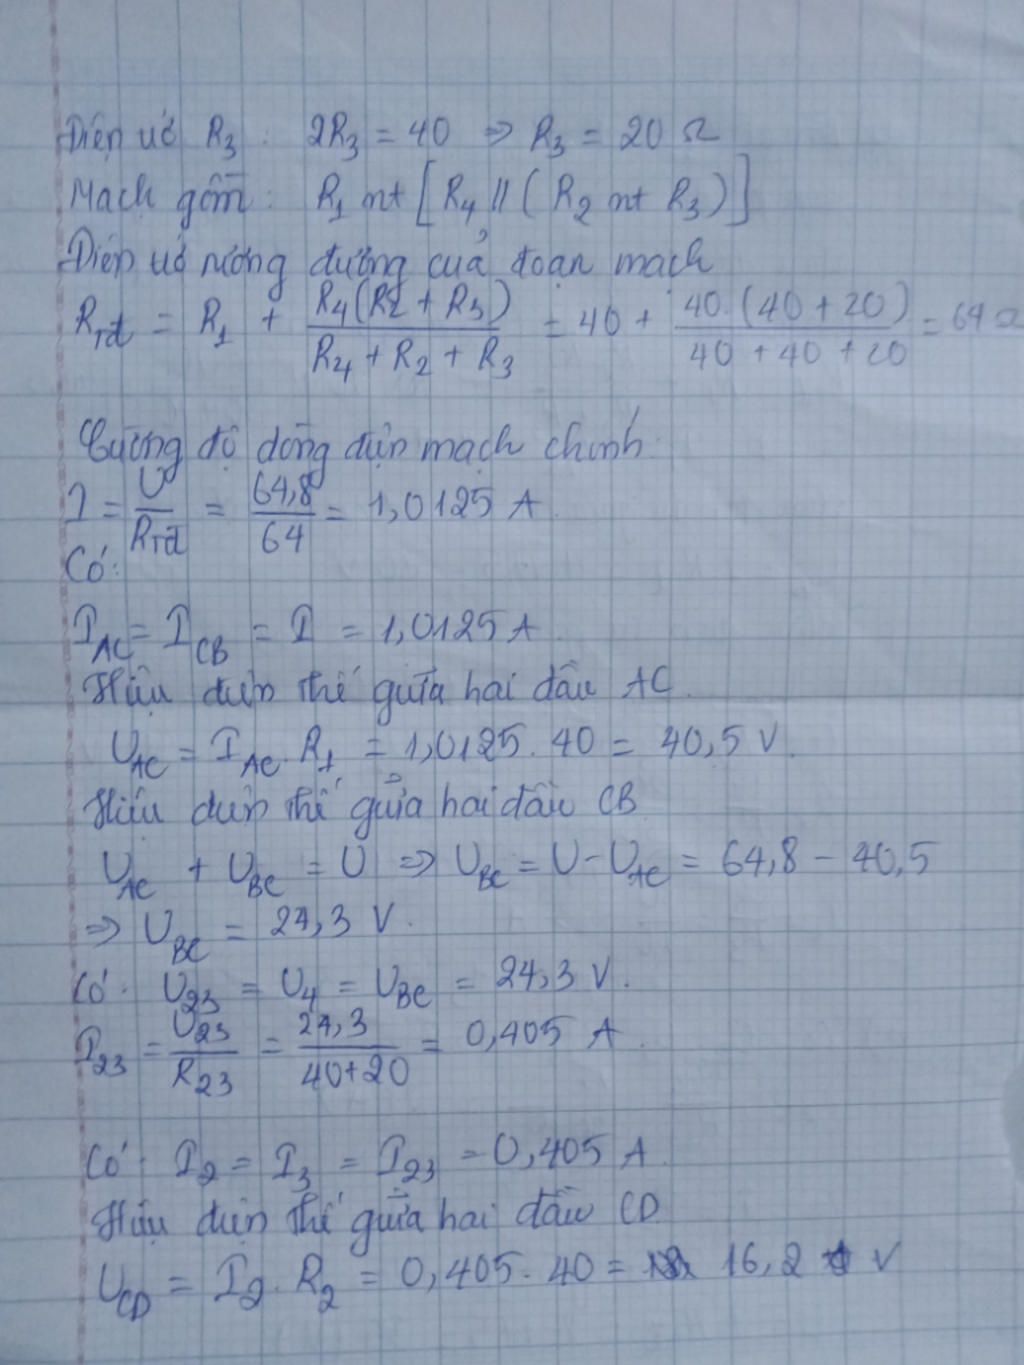 Điện trở R3 : 2R3 = 40 ⇒ R3 = 20 Ω
Mạch gồm : R1 nt [R4 // (R2 nt R3)]
Điện trở tương đương của đoạn mạch
Rtđ = R1 + R4(R2 + R3) / R4 + R2 + R3 = 40 + 40.(40 + 20) / 40 + 40 + 20 = 64 Ω
Cường độ dòng điện mạch chính
I = U / Rtđ = 64,8 / 64 = 1,0125 A
Có:
IAC = ICB = I = 1,0125 A.
Hiệu điện thế giữa hai đầu AC.
UAC = IAC . R1 = 1,0125 . 40 = 40,5 V.
Hiệu điện thế giữa hai đầu CB
UAC + UBC = U ⇒ UBC = U - UAC = 64,8 - 40,5
⇒ UBC = 24,3 V.
Có : U23 = U4 = UBC = 24,3 V.
I23 = U23 / R23 = 24,3 / 40+20 = 0,405 A.
Có : I2 = I3 = I23 = 0,405 A.
Hiệu điện thế giữa hai đầu CD
UCD = I2 . R2 = 0,405 . 40 = 16,2 V